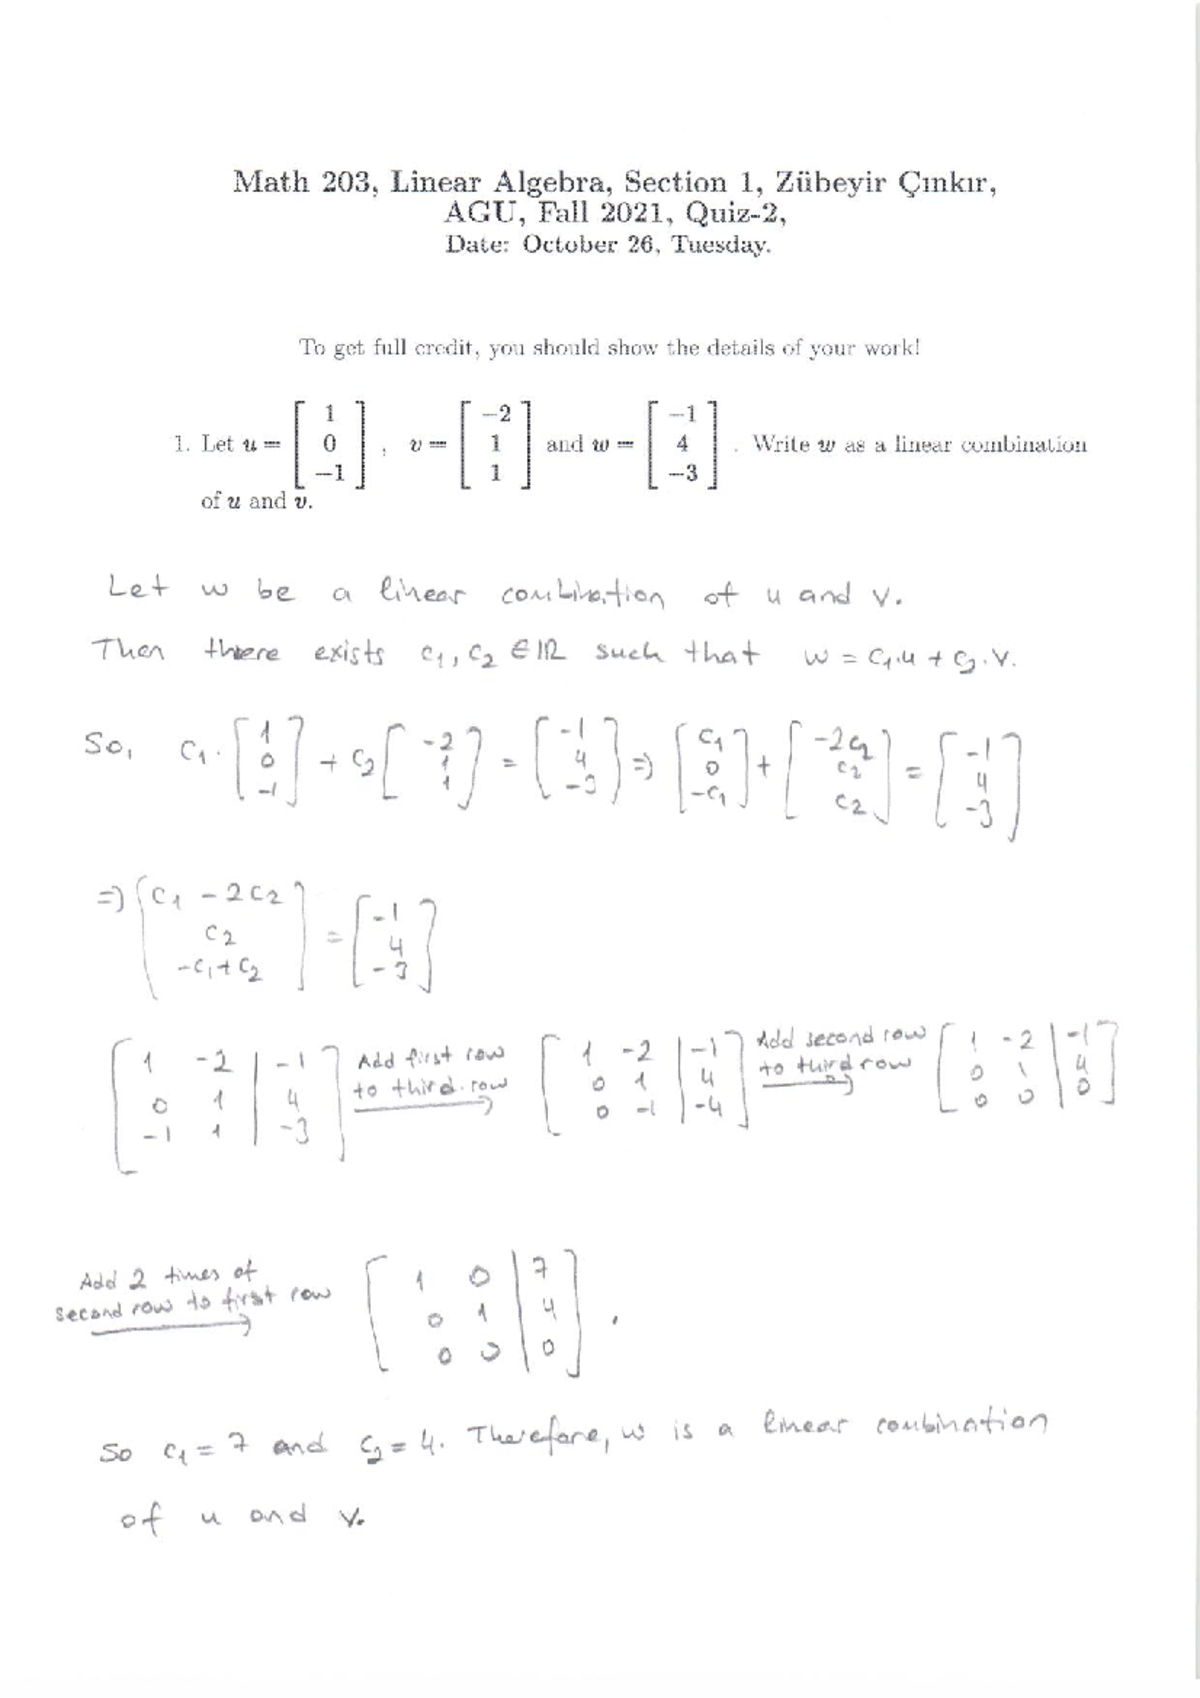 Math 203, Linear Algebra, Section 1, Zübeyir Çınkır,
AGU, Fall 2021, Quiz-2,
Date: October 26, Tuesday.
To get full credit, you should show the details of your work!
1. Let u = [ 1 0 −1 ] , v = [ −2 1 1 ] and w = [ −1 4 −3 ] . Write w as a linear combination
of u and v.
Let w be a linear combination of u and v.
Then there exists c₁, c₂ ∈ IR such that w = c₁.u + c₂.v.
So, c₁. [ 1 0 -1 ] + c₂ [ -2 1 1 ] = [ -1 4 -3 ] => [ c₁ 0 -c₁ ] + [ -2c₂ c₂ c₂ ] = [ -1 4 -3 ]
=> [ c₁ - 2c₂ c₂ -c₁+c₂ ] = [ -1 4 -3 ]
[ 1 -2 | -1 0 1 | 4 -1 1 | -3 ] Add first row to third row → [ 1 -2 | -1 0 1 | 4 0 -1 | -4 ] Add second row to third row → [ 1 -2 | -1 0 1 | 4 0 0 | 0 ]
Add 2 times of
second row to first row → [ 1 0 | 7 0 1 | 4 0 0 | 0 ] .
So c₁ = 7 and c₂ = 4. Therefore, w is a linear combination
of u and v.